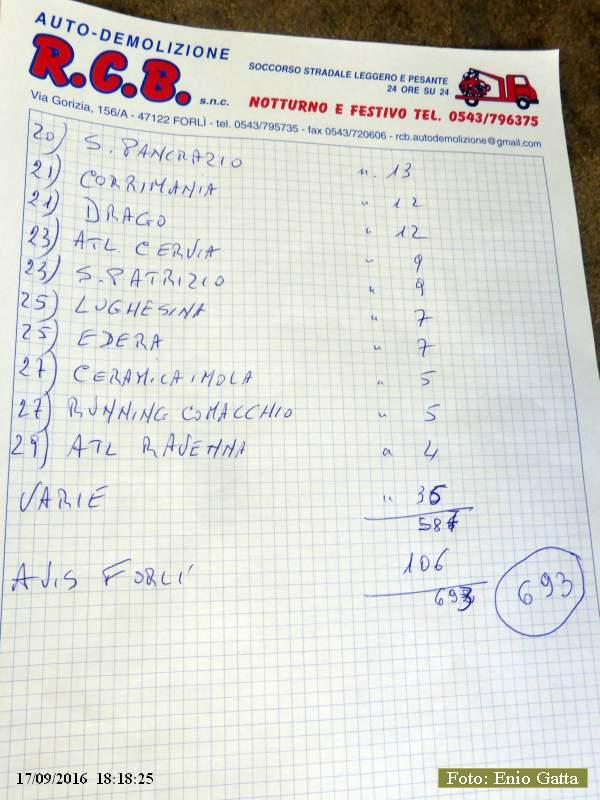 AUTO-DEMOLIZIONE
R.C.B. s.n.c.
SOCCORSO STRADALE LEGGERO E PESANTE
24 ORE SU 24
NOTTURNO E FESTIVO TEL. 0543/796375
Via Gorizia, 156/A - 47122 FORLÌ - tel. 0543/795735 - fax 0543/720606 - rcb.autodemolizione@gmail.com
20) S. PANCRAZIO n. 13
21) CORRIMANIA " 12
21) DRAGO " 12
23) ATL. CERVIA " 9
23) S. PATRIZIO " 9
25) LUGHESINA " 7
25) EDERA " 7
27) CERAMICA IMOLA " 5
27) RUNNING COMACCHIO " 5
29) ATL RAVENNA " 4
VARIE " 36
587
AVIS FORLI' 106
693
693
17/09/2016 18:18:25
Foto: Enio Gatta